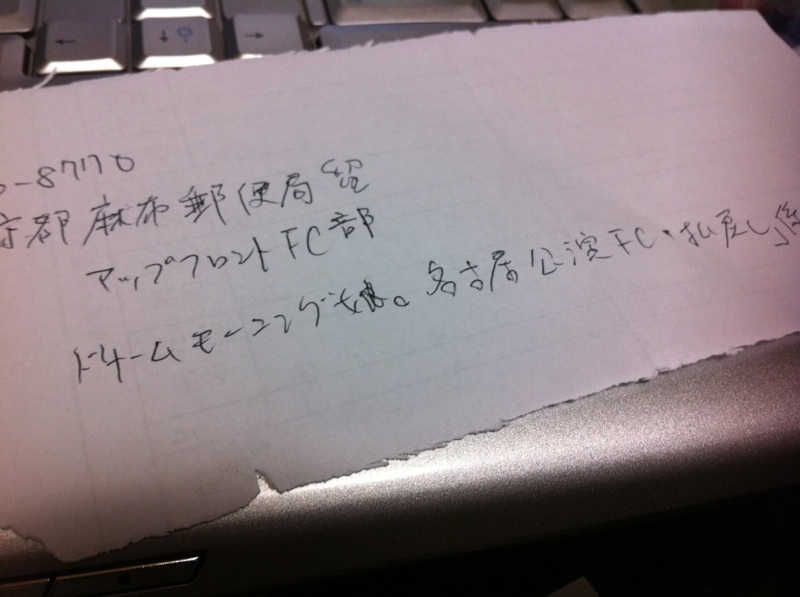 0-8770
京都麻布郵便局留
アップフロントFC部
ドリームモーニング娘。名古屋公演FC・払戻し係